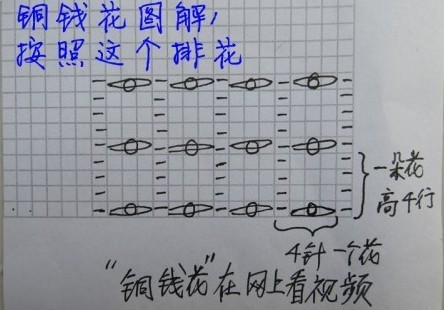 铜钱花图解，
按照这个排花
一朵花
高4行
4针一个花
“铜钱花”在网上看视频